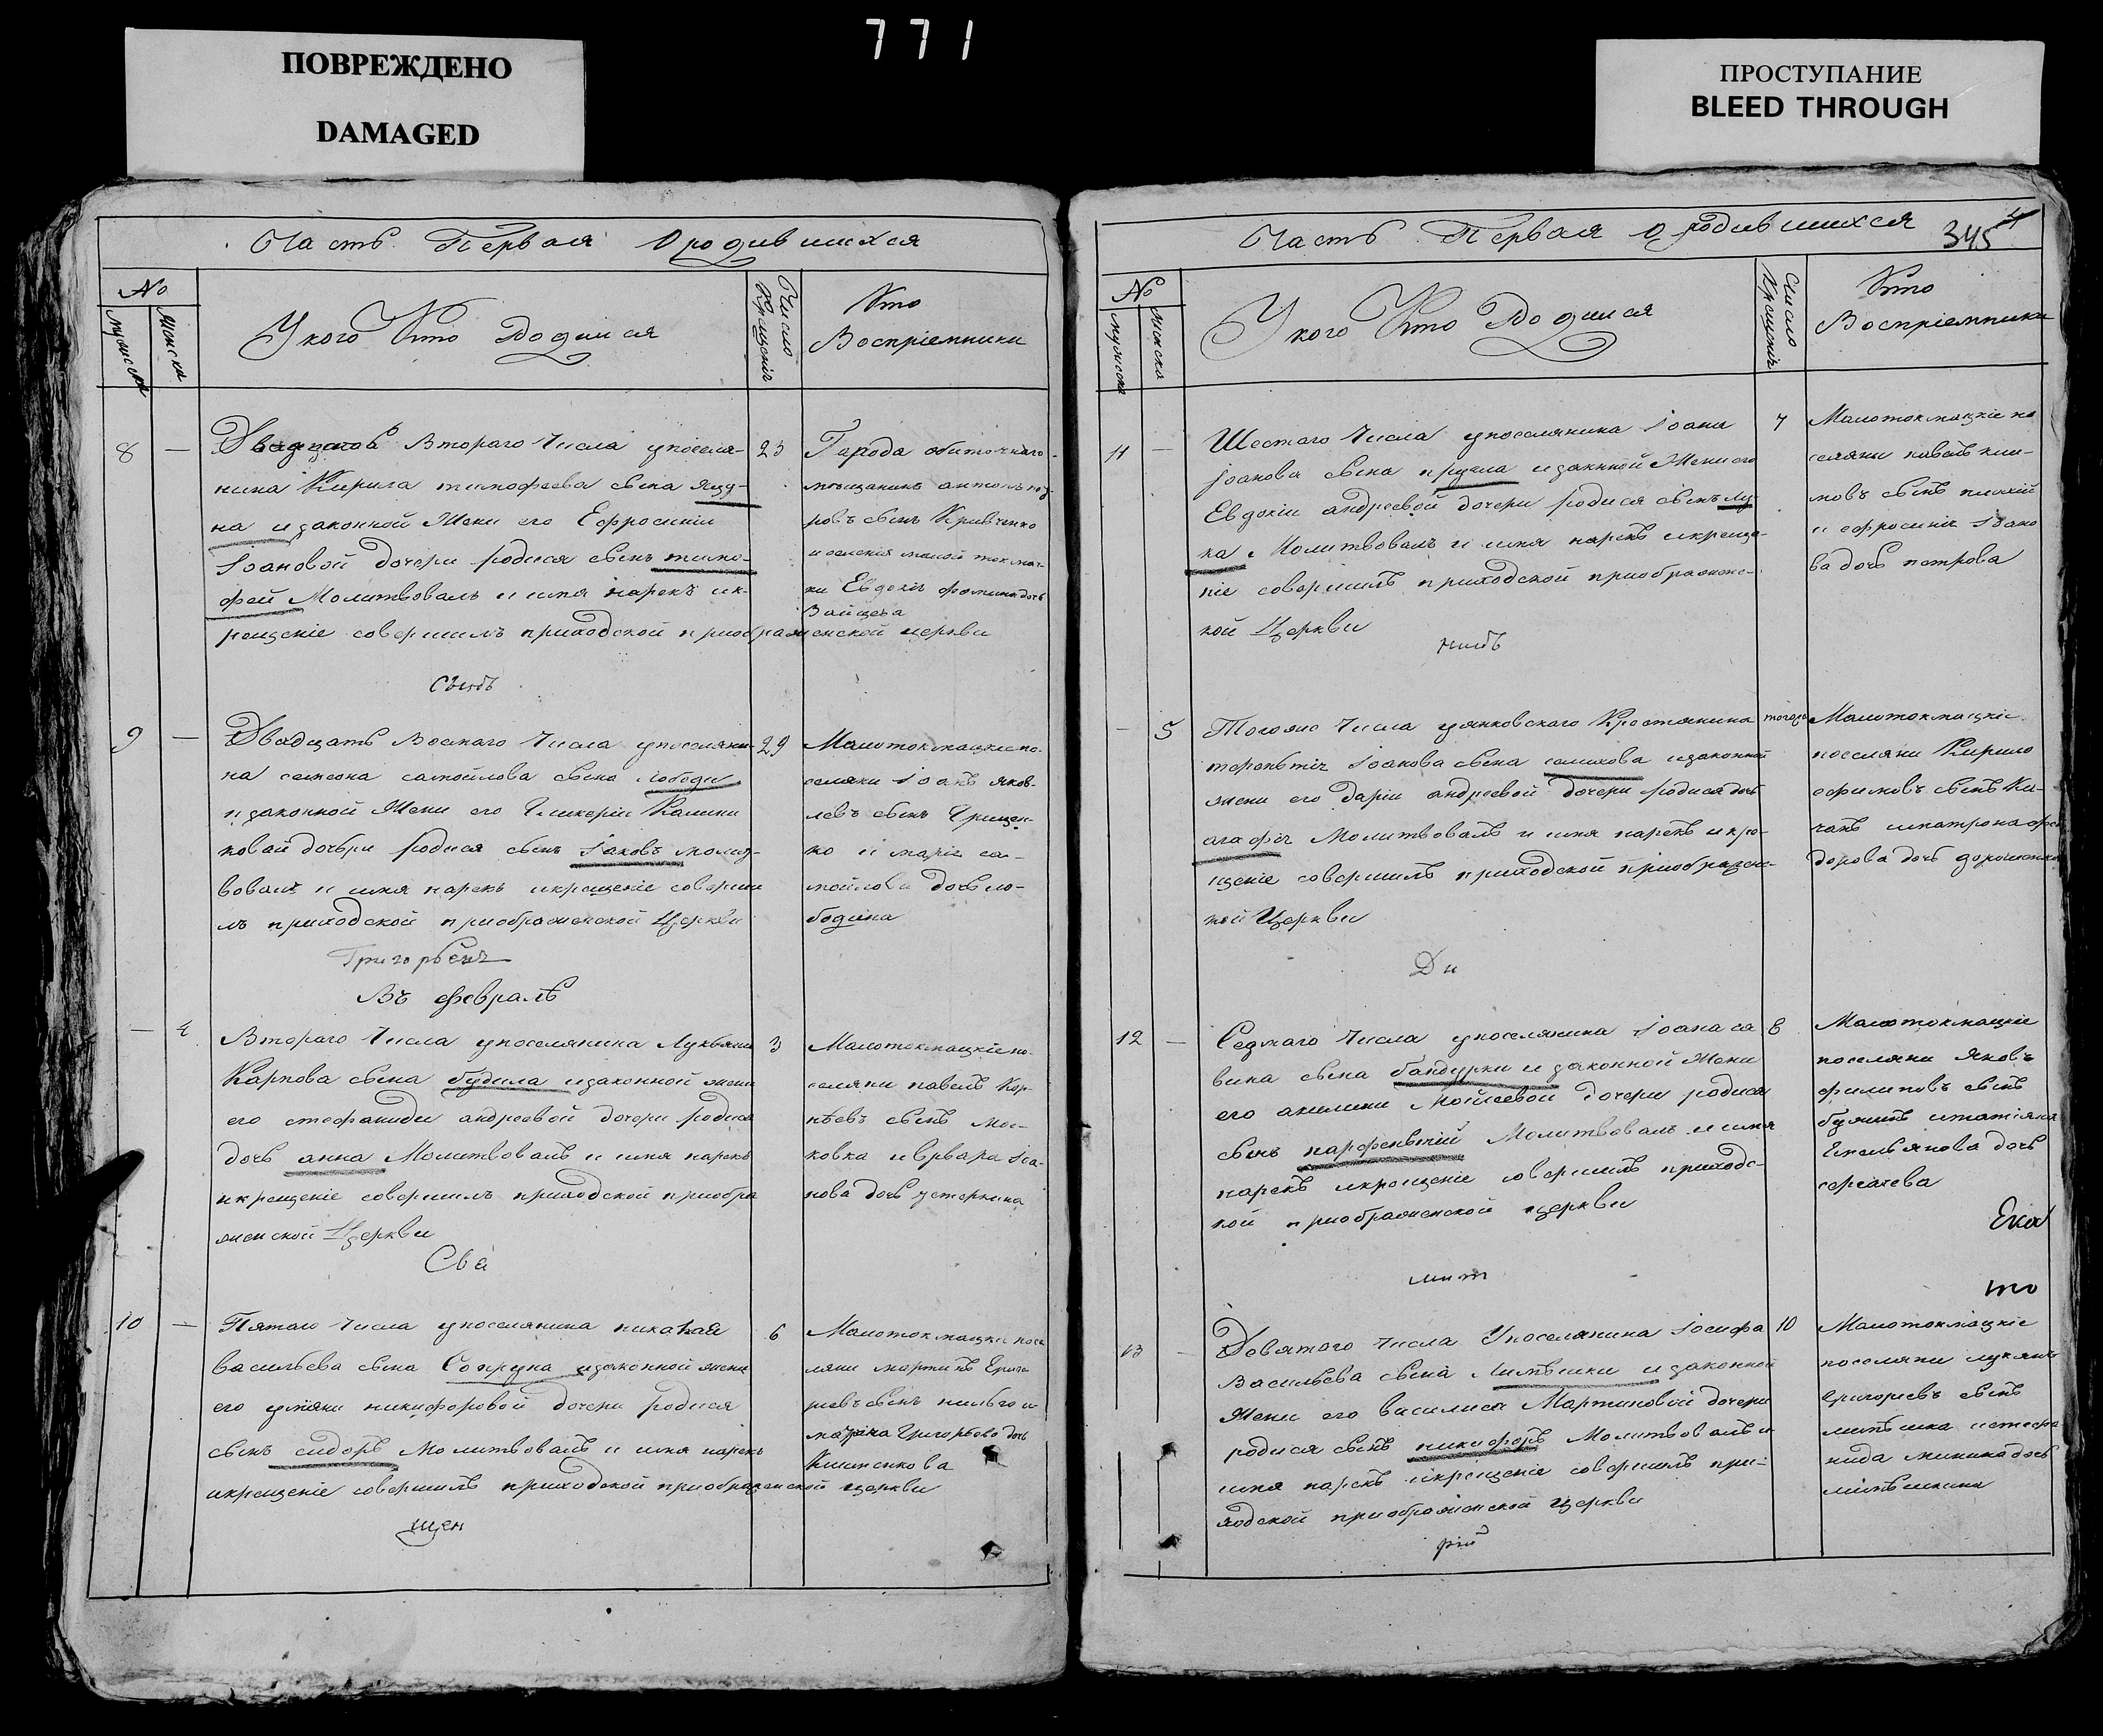 771
ПОВРЕЖДЕНО
DAMAGED
ПРОСТУПАНИЕ
BLEED THROUGH
Часть Первая О родившихся
№
мужеска
женска
У кого Кто Родился
Число Крещенія
Кто Воспріемники
8 —
Двадцать Втораго Числа у поселя-
нина Кирила тимофеева сына
на и законной Жены его Ефросиніи
Іоановой дочери родися сынъ тимо-
фей Молитвовалъ и имя нарекъ и к-
рещеніе совершилъ приходской приображенской церкви
23
Города обиточнаго
мещанинъ
ровъ сынъ Кривченко
ки Евдокія фомина дочь
Зайцева
9 —
Двадцать Восмаго Числа у поселяни-
на самсона самойлова сына лободы
и законной Жены его Гликеріи Калини
ковой дочери родися сынъ Іаковъ молит-
вовалъ и имя нарекъ и крещеніе соверши
лъ приходской приображенской Церкви
29
Малотокмацкіе по-
селяни Іоанъ яков-
левъ сынъ Грицен-
ко и марія са-
мойлова дочь ло-
бодина
Григорьевъ
Въ февралѣ
— 4
Втораго Числа у поселянина Лукьяна
Карпова сына будила и законной жены
его стефаниды андреевой дочери родися
дочь анна Молитвовалъ и имя нарекъ
и крещеніе совершилъ приходской приобра
женской Церкви
3
Малотокмацкіе по-
селяни павелъ Кор-
нѣевъ сынъ Мос-
ковка и врвара Іоа-
нова дочь
Свя
10 —
Пятаго Числа у поселянина николая
васильева сына Сопруна и законной жены
его уляяни никифоровой дочери родися
сынъ сидоръ Молитвовалъ и имя нарекъ
и крещеніе совершилъ приходской приображенской церкви
6
Малотокмацкіе посе
ляни мартинъ Григо
марина Григорьева дочь
Клименкова
щен
Часть Первая О родившихся
345
№
мужеска
женска
У кого Кто Родился
Число Крещенія
Кто Воспріемники
11 —
Шестаго Числа у поселянина Іоана
Іоанова сына и законной Жены его
Евдокіи андреевой дочери родися сынъ лу-
ка Молитвовалъ и имя нарекъ и креще-
ніе совершилъ приходской приображенс-
кой Церкви
7
Малотокмацкіе по
селяни павелъ кли-
мовъ сынъ
и ефросинія Іоано
ва дочь петрова
никъ
— 5
Тогожо Числа у янковскаго Крестянина
терентія Іоанова сына и законной
жены его даріи андреевой дочери родися дочь
агафія Молитвовалъ и имя нарекъ и кре-
щеніе совершилъ приходской приображенс-
кой Церкви
тогоже
Малотокмацкіе
поселяни Кирило
ефимовъ сынъ Ки-
чакъ и матрона фео
дорова дочь дорошенкова
Ди
12 —
Седмаго Числа у поселянина Іоана са
вина сына бандурки и законной Жены
его акилини Мойсеевой дочери родися
сынъ парфентій Молитвовалъ и имя
нарекъ и крещеніе совершилъ приходс-
кой приображенской церкви
8
Малотокмацкіе
поселяни яковъ
филиповъ сынъ
и татіяна
Емельянова дочь
Ека
мит
то
13 —
Девятаго Числа У поселянина Іосифа
Васильева сына Литвишки и законной
Жены его василиси Мартиновой дочери
родися сынъ никифоръ Молитвовалъ и
имя нарекъ и крещеніе совершилъ при-
ходской приображенской церкви
10
Малотокмацкіе
поселяни лукянъ
Григорьевъ сынъ
и стефа
нида дочь
рій